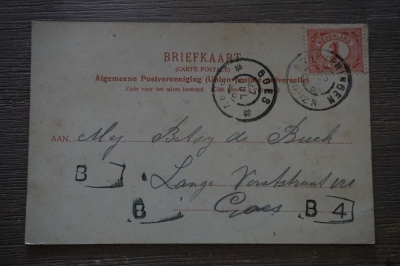 NEDERLAND
1
BRIEFKAART
(CARTE POSTALE)
Algemeene Postvereeniging (Union postale universelle)
Zijde voor het adres bestemd.
GOES
AAN
Mej Betsy de Buck
B
Lange Vorststraat
B
Goes
B 4